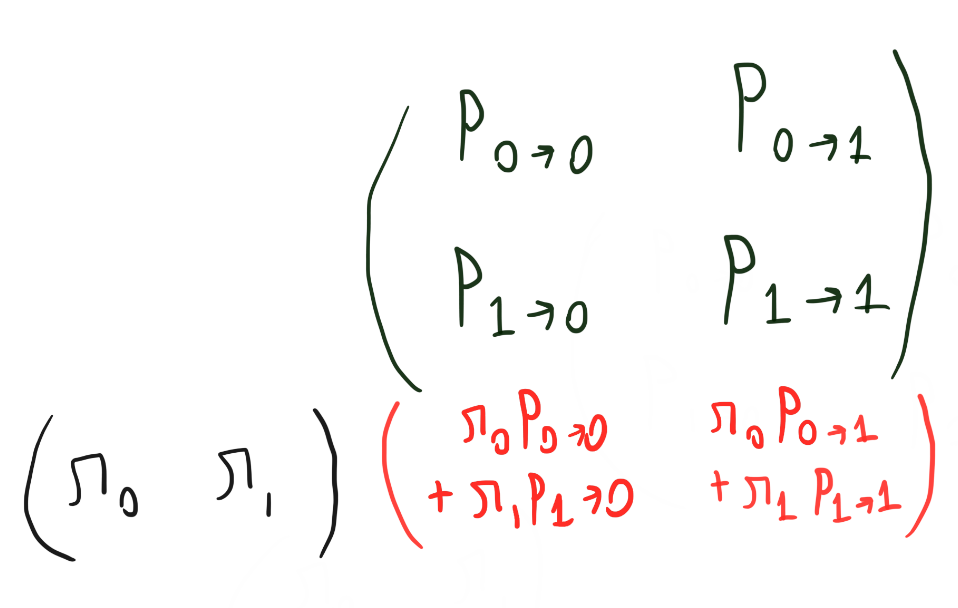 ( P₀→₀ P₀→₁
P₁→₀ P₁→₁ )
( π₀ π₁ ) ( π₀P₀→₀ π₀P₀→₁
+ π₁P₁→₀ + π₁P₁→₁ )